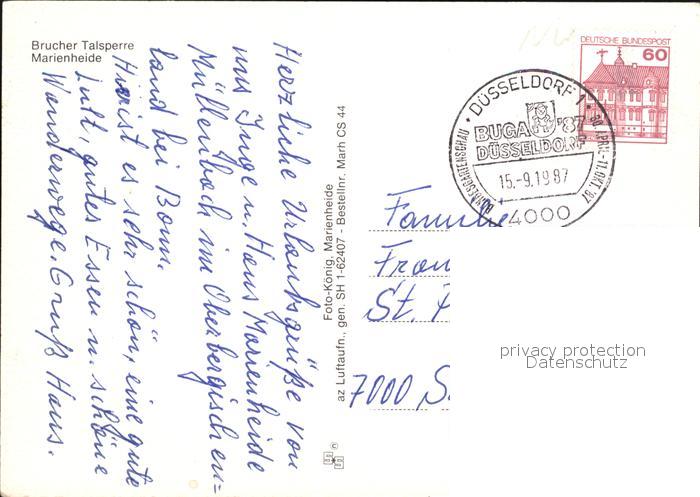 Brucher Talsperre
Marienheide
Herzliche Urlaubsgrüße von
uns Inge u. Hans Marienheide
Müllenbach im Oberbergischen=
land bei Bonn.
Hier ist es sehr schön, eine gute
Luft, gutes Essen u. schöne
Wanderwege. Gruß Hans.
Foto-König, Marienheide
az Luftaufn., gen. SH 1-62407 - Bestellnr. Marh CS 44
DEUTSCHE BUNDESPOST
60
DÜSSELDORF 1
BUNDESGARTENSCHAU
30. APRIL-11. OKT. '87
BUGA '87
DÜSSELDORF
15.-9.1987
4000
Familie
St.
7000 S
privacy protection
Datenschutz